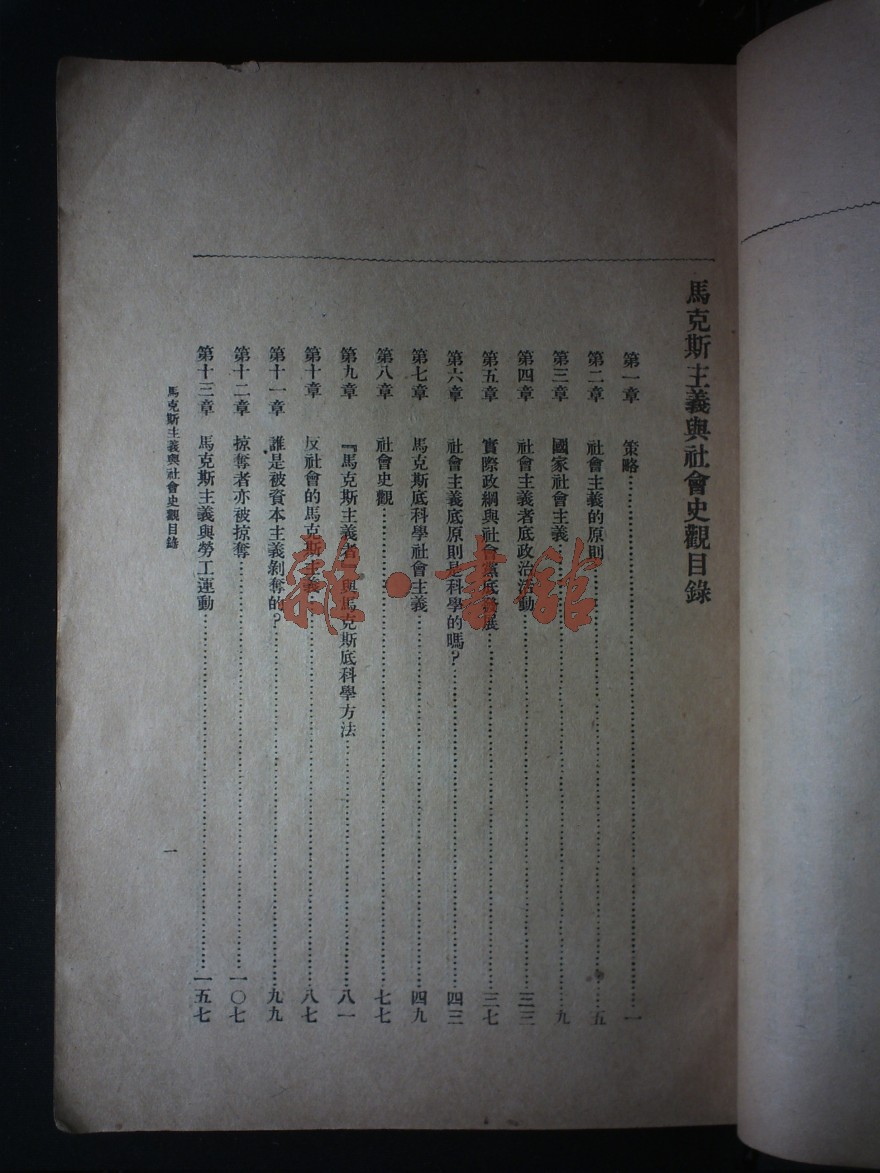 馬克斯主義與社會史觀目錄
第一章 策略……一
第二章 社會主義的原則……五
第三章 國家社會主義……九
第四章 社會主義者底政治活動……三三
第五章 實際政綱與社會黨底發展……三七
第六章 社會主義底原則是科學的嗎?……四三
第七章 馬克斯底科學社會主義……四九
第八章 社會史觀……七七
第九章 『馬克斯主義者』與馬克斯底科學方法……八一
第十章 反社會的馬克斯主義……八七
第十一章 誰是被資本主義剝奪的?……九九
第十二章 掠奪者亦被掠奪……一〇七
第十三章 馬克斯主義與勞工運動……一五七
馬克斯主義與社會史觀目錄
一
雜·書館